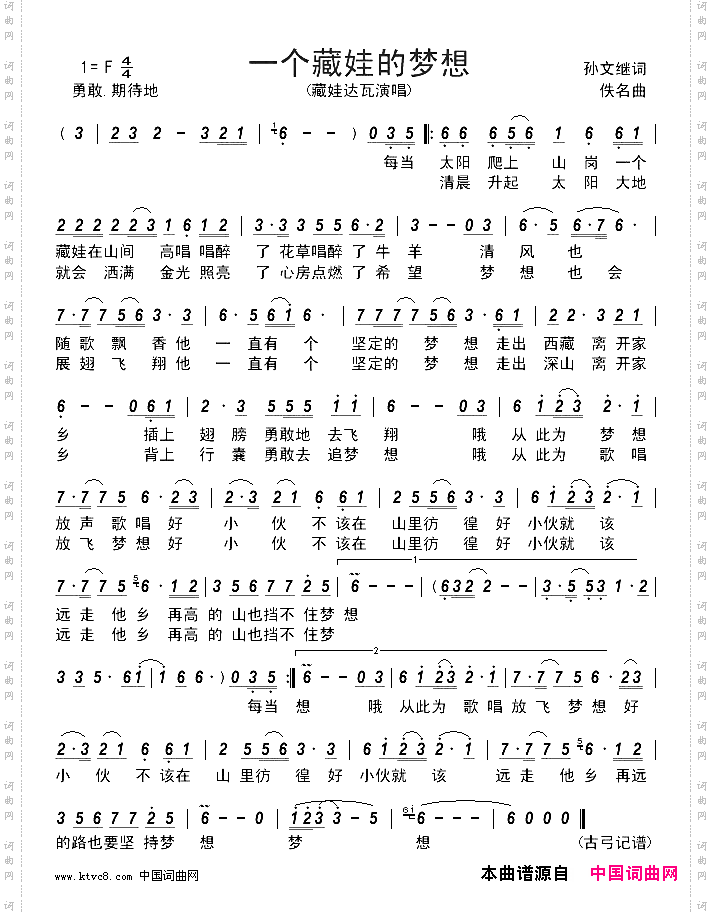 一个藏娃的梦想
1=F 4/4
孙文继词
勇敢.期待地
(藏娃达瓦演唱)
佚名曲
( 3 | 2 3 2 - 3 2 1 | 6 - - ) 0 3 5 ‖: 6 6 6 5 6 1 6 6 1 |
每当 太阳 爬上 山 岗 一个
清晨 升起 太 阳 大地
2 2 2 2 2 3 1 6 1 2 | 3 · 3 3 5 5 6 · 2 | 3 - - 0 3 | 6 · 5 6 · 7 6 · |
藏娃在山间 高唱 唱醉 了 花草唱醉 了 牛 羊 清 风 也
就会 洒满 金光 照亮 了 心房点燃 了 希 望 梦 想 也 会
7 · 7 7 5 6 3 · 3 | 6 · 5 6 1 6 · | 7 7 7 7 5 3 · 3 6 1 | 2 2 · 3 2 1 |
随 歌 飘 香 他 一 直有 个 坚定的 梦 想 走出 西藏 离 开家
展 翅 飞 翔 他 一 直有 个 坚定的 梦 想 走出 深山 离 开家
6 - - 0 6 1 | 2 · 3 5 5 5 1 1 | 6 - - 0 3 | 6 1 2 3 2 · 1 |
乡 插上 翅 膀 勇敢地 去飞 翔 哦 从 此为 梦想
乡 背上 行 囊 勇敢去 追梦 想 哦 从 此为 歌唱
7 · 7 7 5 6 · 2 3 | 2 · 3 2 1 6 6 1 | 7 7 7 5 6 5 3 · | 6 1 2 3 2 · 1 |
放 声 歌 唱 好 小 伙 不 该在 山里彷 徨 好 小伙就 该
放 飞 梦 想 好 小 伙 不 该在 山里彷 徨 好 小伙就 该
1
7 · 7 7 5 5 6 · 1 2 | 3 5 6 7 7 2 5 | 6 - - - | ( 6 3 2 2 - - | 3 · 5 5 3 1 · 2 |
远 走 他 乡 再高 的 山也挡不 住梦 想
远 走 他 乡 再高 的 山也挡不 住梦
2
3 3 5 · 6 1 | 1 6 6 · ) 0 3 5 :‖ 6 - - 0 3 | 6 1 2 3 2 · 1 | 7 · 7 7 5 6 · 2 3 |
每当 想 哦 从此为 歌唱 放飞 梦想 好
2 · 3 2 1 6 6 1 | 7 7 7 5 6 5 3 · | 6 1 2 3 2 · 1 | 7 · 7 7 5 5 6 · 1 2 |
小 伙 不 该在 山 里彷 徨 好 小伙就 该 远 走 他 乡 再远
3 5 6 7 7 2 5 | 6 - - 0 | 1 2 3 3 - 5 | 6i 6 - - - | 6 0 0 0 ‖
的 路也要坚 持梦 想 梦 想 (古弓记谱)
www.ktvc8.com 中国词曲网
本曲谱源自 中国词曲网